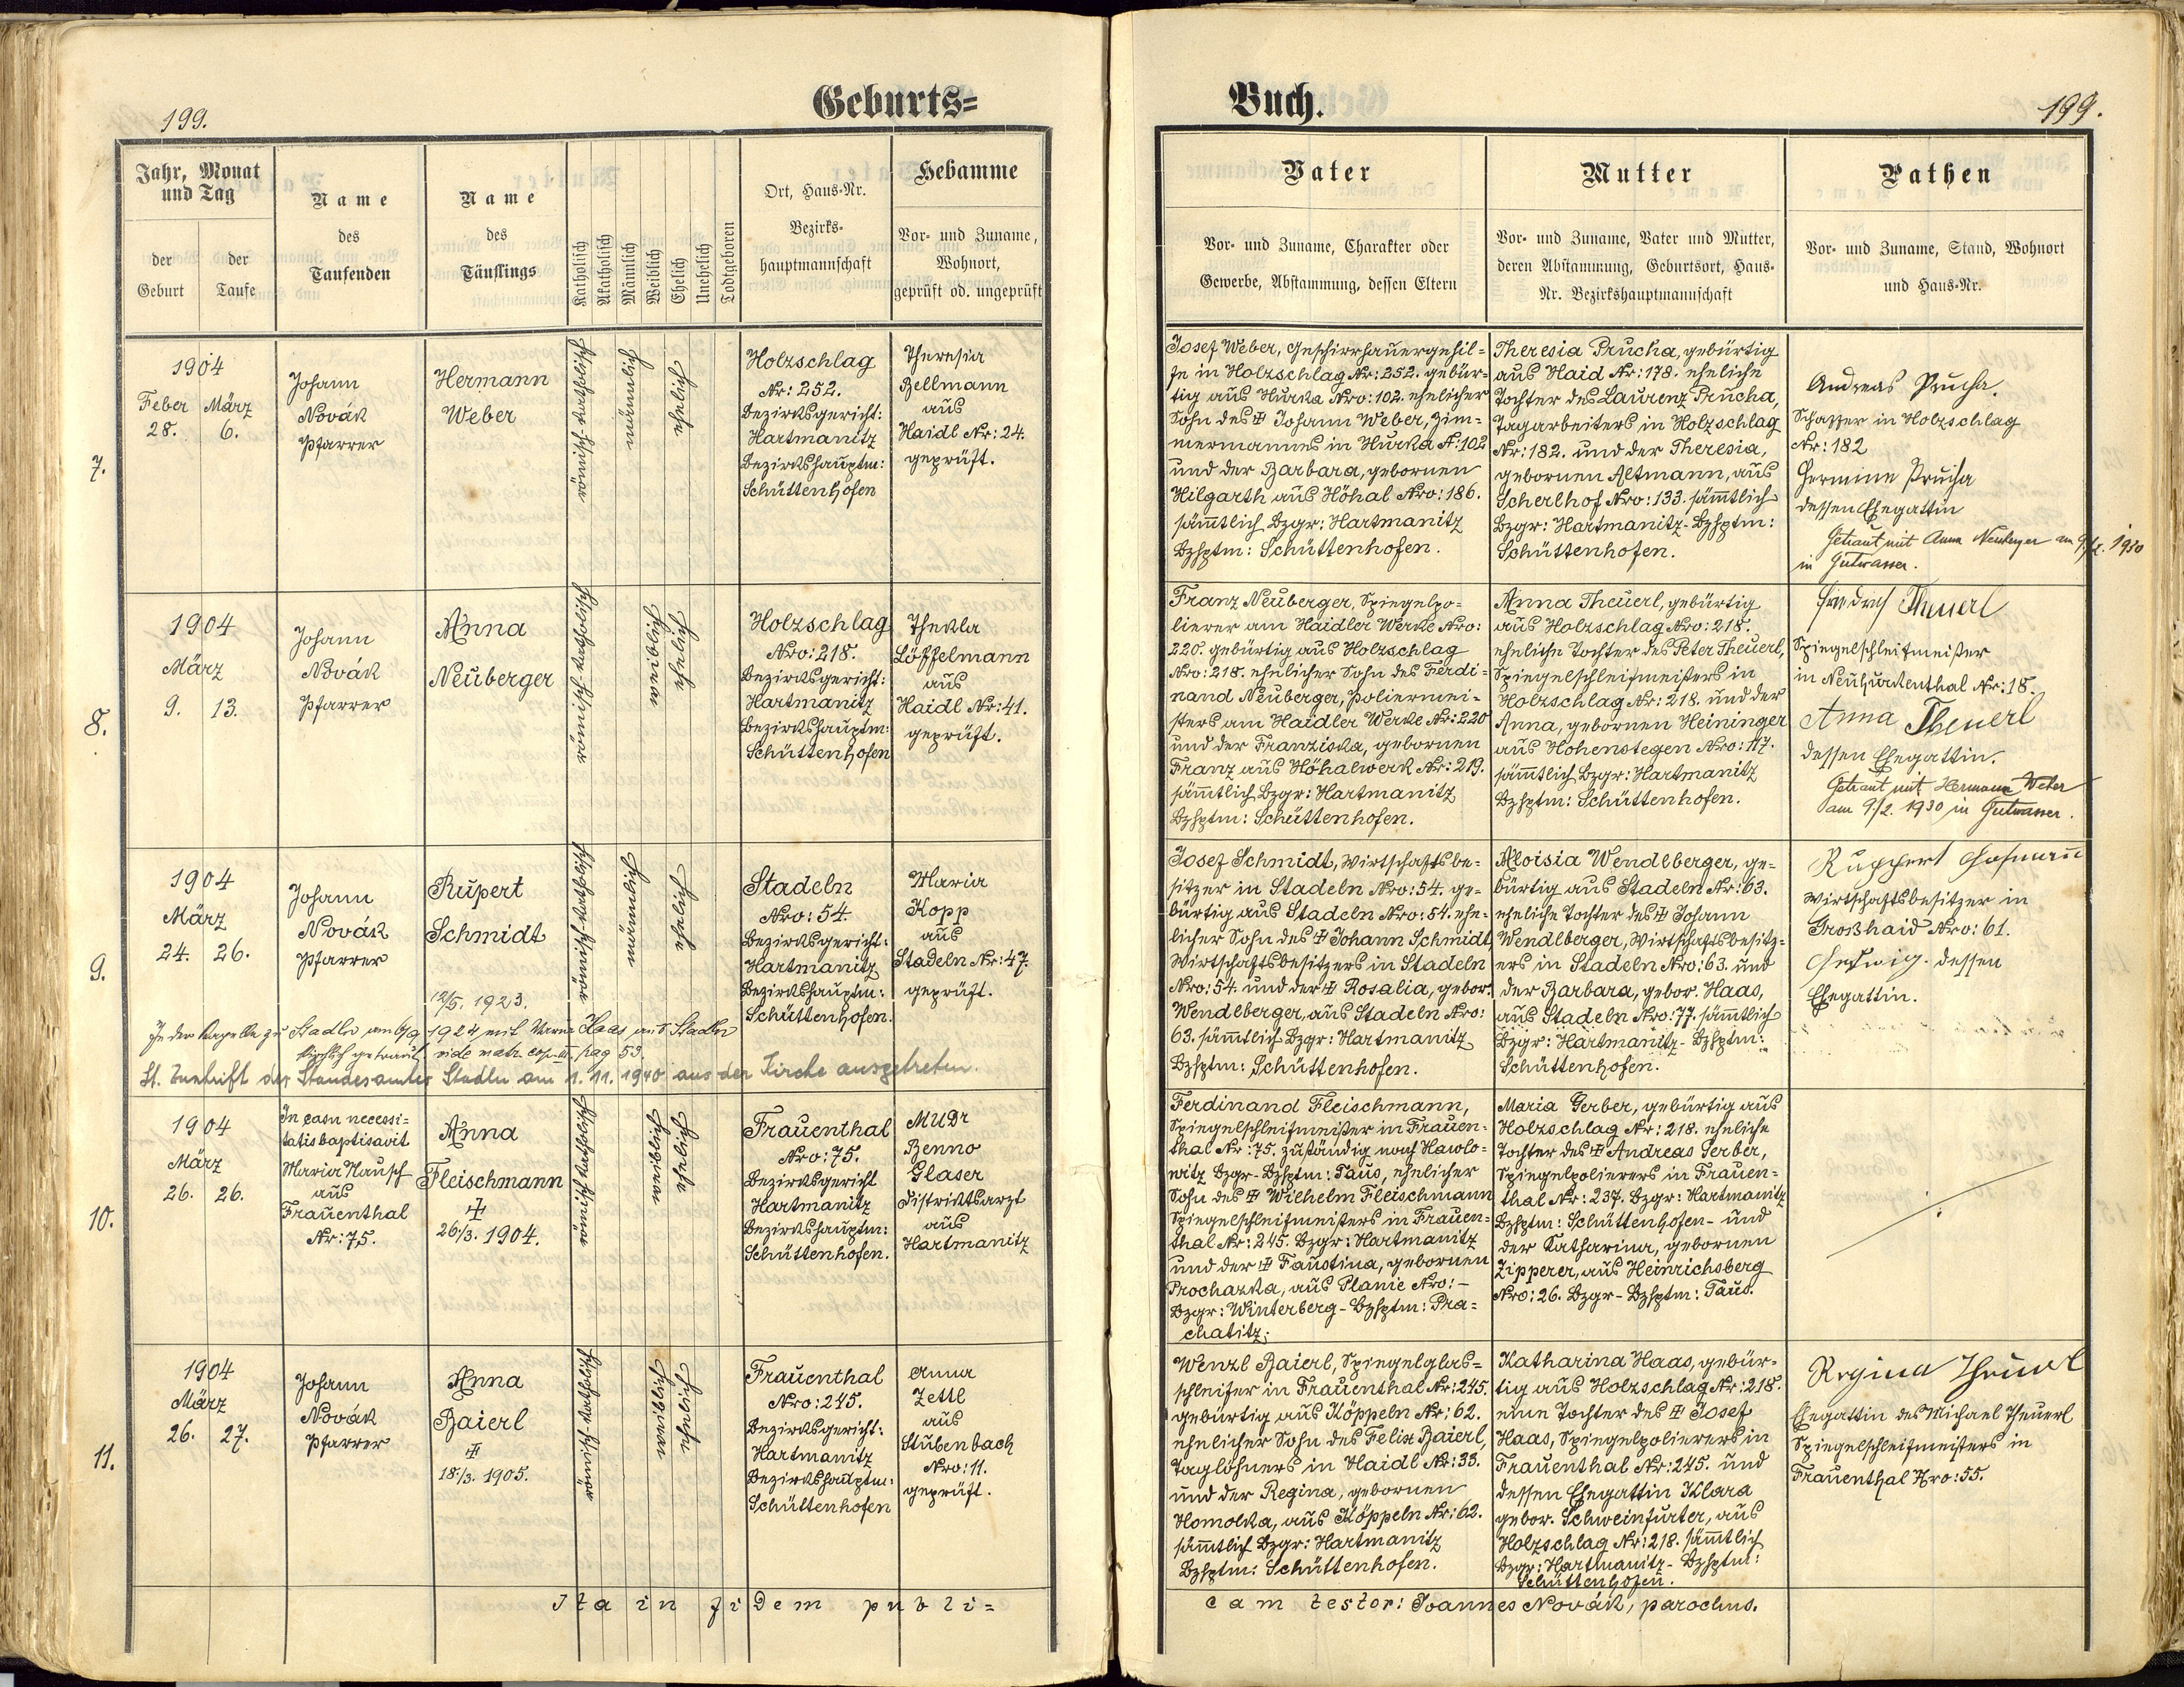 199.
Geburts=
Jahr, Monat
und Tag
der
Geburt
der
Taufe
Name
des
Taufenden
Name
des
Täuflings
Katholisch
Akatholisch
Männlich
Weiblich
Ehelich
Unehelich
Todtgeboren
Ort, Haus-Nr.
Bezirks-
hauptmannschaft
Hebamme
Vor- und Zuname,
Wohnort,
geprüft od. ungeprüft
7.
1904
Feber März
28. 6.
Johann
Novák
Pfarrer
Hermann
Weber
römisch-katholisch
männlich
ehelich
Holzschlag
Nr: 252.
Bezirksgericht:
Hartmanitz
Bezirkshauptm:
Schüttenhofen
Theresia
Zellmann
aus
Haidl Nr: 24.
geprüft.
8.
1904
März
9. 13.
Johann
Novák
Pfarrer
Anna
Neuberger
römisch-katholisch
weiblich
ehelich
Holzschlag
Nro: 218.
Bezirksgericht:
Hartmanitz
Bezirkshauptm:
Schüttenhofen
Thekla
Löffelmann
aus
Haidl Nr: 41.
geprüft.
9.
1904
März
24. 26.
Johann
Novák
Pfarrer
Rupert
Schmidt
12/5. 1923.
römisch-katholisch
männlich
ehelich
Stadeln
Nro: 54.
Bezirksgericht:
Hartmanitz
Bezirkshauptm:
Schüttenhofen.
Maria
Kopp
aus
Stadeln Nr: 47.
geprüft.
In der Kapelle zu Stadln am 6/9 1924 mit Maria Haas aus Stadln
kirchlich getraut. vide matr. cop. III. pag 53.
Lt. Zuschrift des Standesamtes Stadln am 1. 11. 1940 aus der Kirche ausgetreten.
10.
1904
März
26. 26.
In casu necessi=
tatis baptisavit
Maria Nausch
aus
Frauenthal
Nr: 75.
Anna
Fleischmann
‡
26/3. 1904.
römisch katholisch
weiblich
ehelich
Frauenthal
Nro: 75.
Bezirksgericht
Hartmanitz
Bezirkshauptm:
Schüttenhofen.
MUDr
Benno
Glaser
Distriktsarzt
aus
Hartmanitz
11.
1904
März
26. 27.
Johann
Novák
Pfarrer
Anna
Baierl
‡
18./3. 1905.
römisch-katholisch
weiblich
ehelich
Frauenthal
Nro: 245.
Bezirksgericht:
Hartmanitz
Bezirkshauptm:
Schüttenhofen
Anna
Zettl
aus
Stubenbach
Nro: 11.
geprüft.
Ita in fidem publi=
Buch.
199.
Vater
Vor- und Zuname, Charakter oder
Gewerbe, Abstammung, dessen Eltern
Mutter
Vor- und Zuname, Vater und Mutter,
deren Abstammung, Geburtsort, Haus-
Nr. Bezirkshauptmannschaft
Pathen
Vor- und Zuname, Stand, Wohnort
und Haus-Nr.
Josef Weber, Geschirrhauergehil=
fe in Holzschlag Nr: 252. gebür=
tig aus Hurka Nro: 102. ehelicher
Sohn des ‡ Johann Weber, Zim=
mermannes in Hurka N: 102
und der Barbara, gebornen
Hilgarth aus Höhal Nro: 186.
sämmtlich Bzgr: Hartmanitz
Bzhptm: Schüttenhofen.
Theresia Prucha, gebürtig
aus Haid Nr: 178. eheliche
Tochter des Laurenz Prucha,
Tagarbeiters in Holzschlag
Nr: 182. und der Theresia,
gebornen Altmann, aus
Scherlhof Nro: 133. sämmtlich
Bzgr: Hartmanitz-Bzhptm:
Schüttenhofen.
Andreas Prucha.
Schaffer in Holzschlag
Nr: 182
Hermine Prucha
dessen Ehegattin
Getraut mit Anna Neuberger am 9./2. 1930
in Gutwasser.
Franz Neuberger, Spiegelpo=
lierer am Haidler Werke Nro:
220. gebürtig aus Holzschlag
Nro: 218. ehelicher Sohn des Ferdi=
nand Neuberger, Poliermei=
sters am Haidler Werke Nr: 220
und der Franziska, gebornen
Franz aus Höhalwerk Nr: 219.
sämmtlich Bzgr: Hartmanitz
Bzhptm: Schüttenhofen.
Anna Theuerl, gebürtig
aus Holzschlag Nro: 218.
eheliche Tochter des Peter Theuerl,
Spiegelschleifmeisters in
Holzschlag Nr: 218. und der
Anna, gebornen Heininger
aus Hohenstegen Nro: 117.
sämmtlich Bzgr: Hartmanitz
Bzhptm: Schüttenhofen.
Friedrich Theuerl
Spiegelschleifmeister
in Neuhurkenthal Nr: 18.
Anna Theuerl
dessen Ehegattin.
Getraut mit Hermann Weber
am 9./2. 1930 in Gutwasser.
Josef Schmidt, Wirtschaftsbe=
sitzer in Stadeln Nro: 54. ge=
bürtig aus Stadeln Nro: 54. ehe=
licher Sohn des ‡ Johann Schmidt
Wirtschaftsbesitzers in Stadeln
Nro: 54. und der ‡ Rosalia, gebor.
Wendlberger, aus Stadeln Nro:
63. sämmtlich Bzgr: Hartmanitz
Bzhptm: Schüttenhofen.
Aloisia Wendlberger, ge=
bürtig aus Stadeln Nr: 63.
eheliche Tochter des ‡ Johann
Wendlberger, Wirtschaftsbesitz=
ers in Stadeln Nro: 63. und
der Barbara, gebor. Haas,
aus Stadeln Nro: 77. sämmtlich
Bzgr: Hartmanitz-Bzhptm:
Schüttenhofen.
Ruppert Hofmann
Wirtschaftsbesitzer in
Großhaid Nro: 61.
Hedwig. dessen
Ehegattin.
Ferdinand Fleischmann,
Spiegelschleifmeister in Frauen=
thal Nr: 75. zuständig nach Hawlo=
witz Bzgr-Bzhptm: Taus, ehelicher
Sohn des ‡ Wilhelm Fleischmann
Spiegelschleifmeisters in Frauen=
thal Nr: 245. Bzgr: Hartmanitz
und der ‡ Faustina, gebornen
Prochazka, aus Planie Nro: -
Bzgr: Winterberg-Bzhptm: Pra=
chatitz;
Maria Gerber, gebürtig aus
Holzschlag Nr: 218. eheliche
Tochter des ‡ Andreas Gerber,
Spiegelpolierers in Frauen=
thal Nr: 237. Bzgr: Hartmanitz
Bzhptm: Schüttenhofen- und
der Katharina, gebornen
Zipperer, aus Heinrichsberg
Nro: 26. Bzgr-Bzhptm: Taus.
Wenzl Baierl, Spiegelglas=
schleifer in Frauenthal Nr: 245.
gebürtig aus Köppeln Nr: 62.
ehelicher Sohn des Felix Baierl,
Taglöhners in Haidl Nr: 33.
und der Regina, gebornen
Homolka, aus Köppeln Nr: 62.
sämmtlich Bzgr: Hartmanitz
Bzhptm: Schüttenhofen.
Katharina Haas, gebür=
tig aus Holzschlag Nr: 218.
eine Tochter des ‡ Josef
Haas, Spiegelpolierers in
Frauenthal Nr: 245. und
dessen Ehegattin Klara
gebor. Schweinfurter, aus
Holzschlag Nr: 218. sämmtlich
Bzgr: Hartmanitz-Bzhptm:
Schüttenhofen.
Regina Theuerl
Ehegattin des Michael Theuerl
Spiegelschleifmeisters in
Frauenthal Nro: 55.
cam testor: Joannes Novák, parochus.